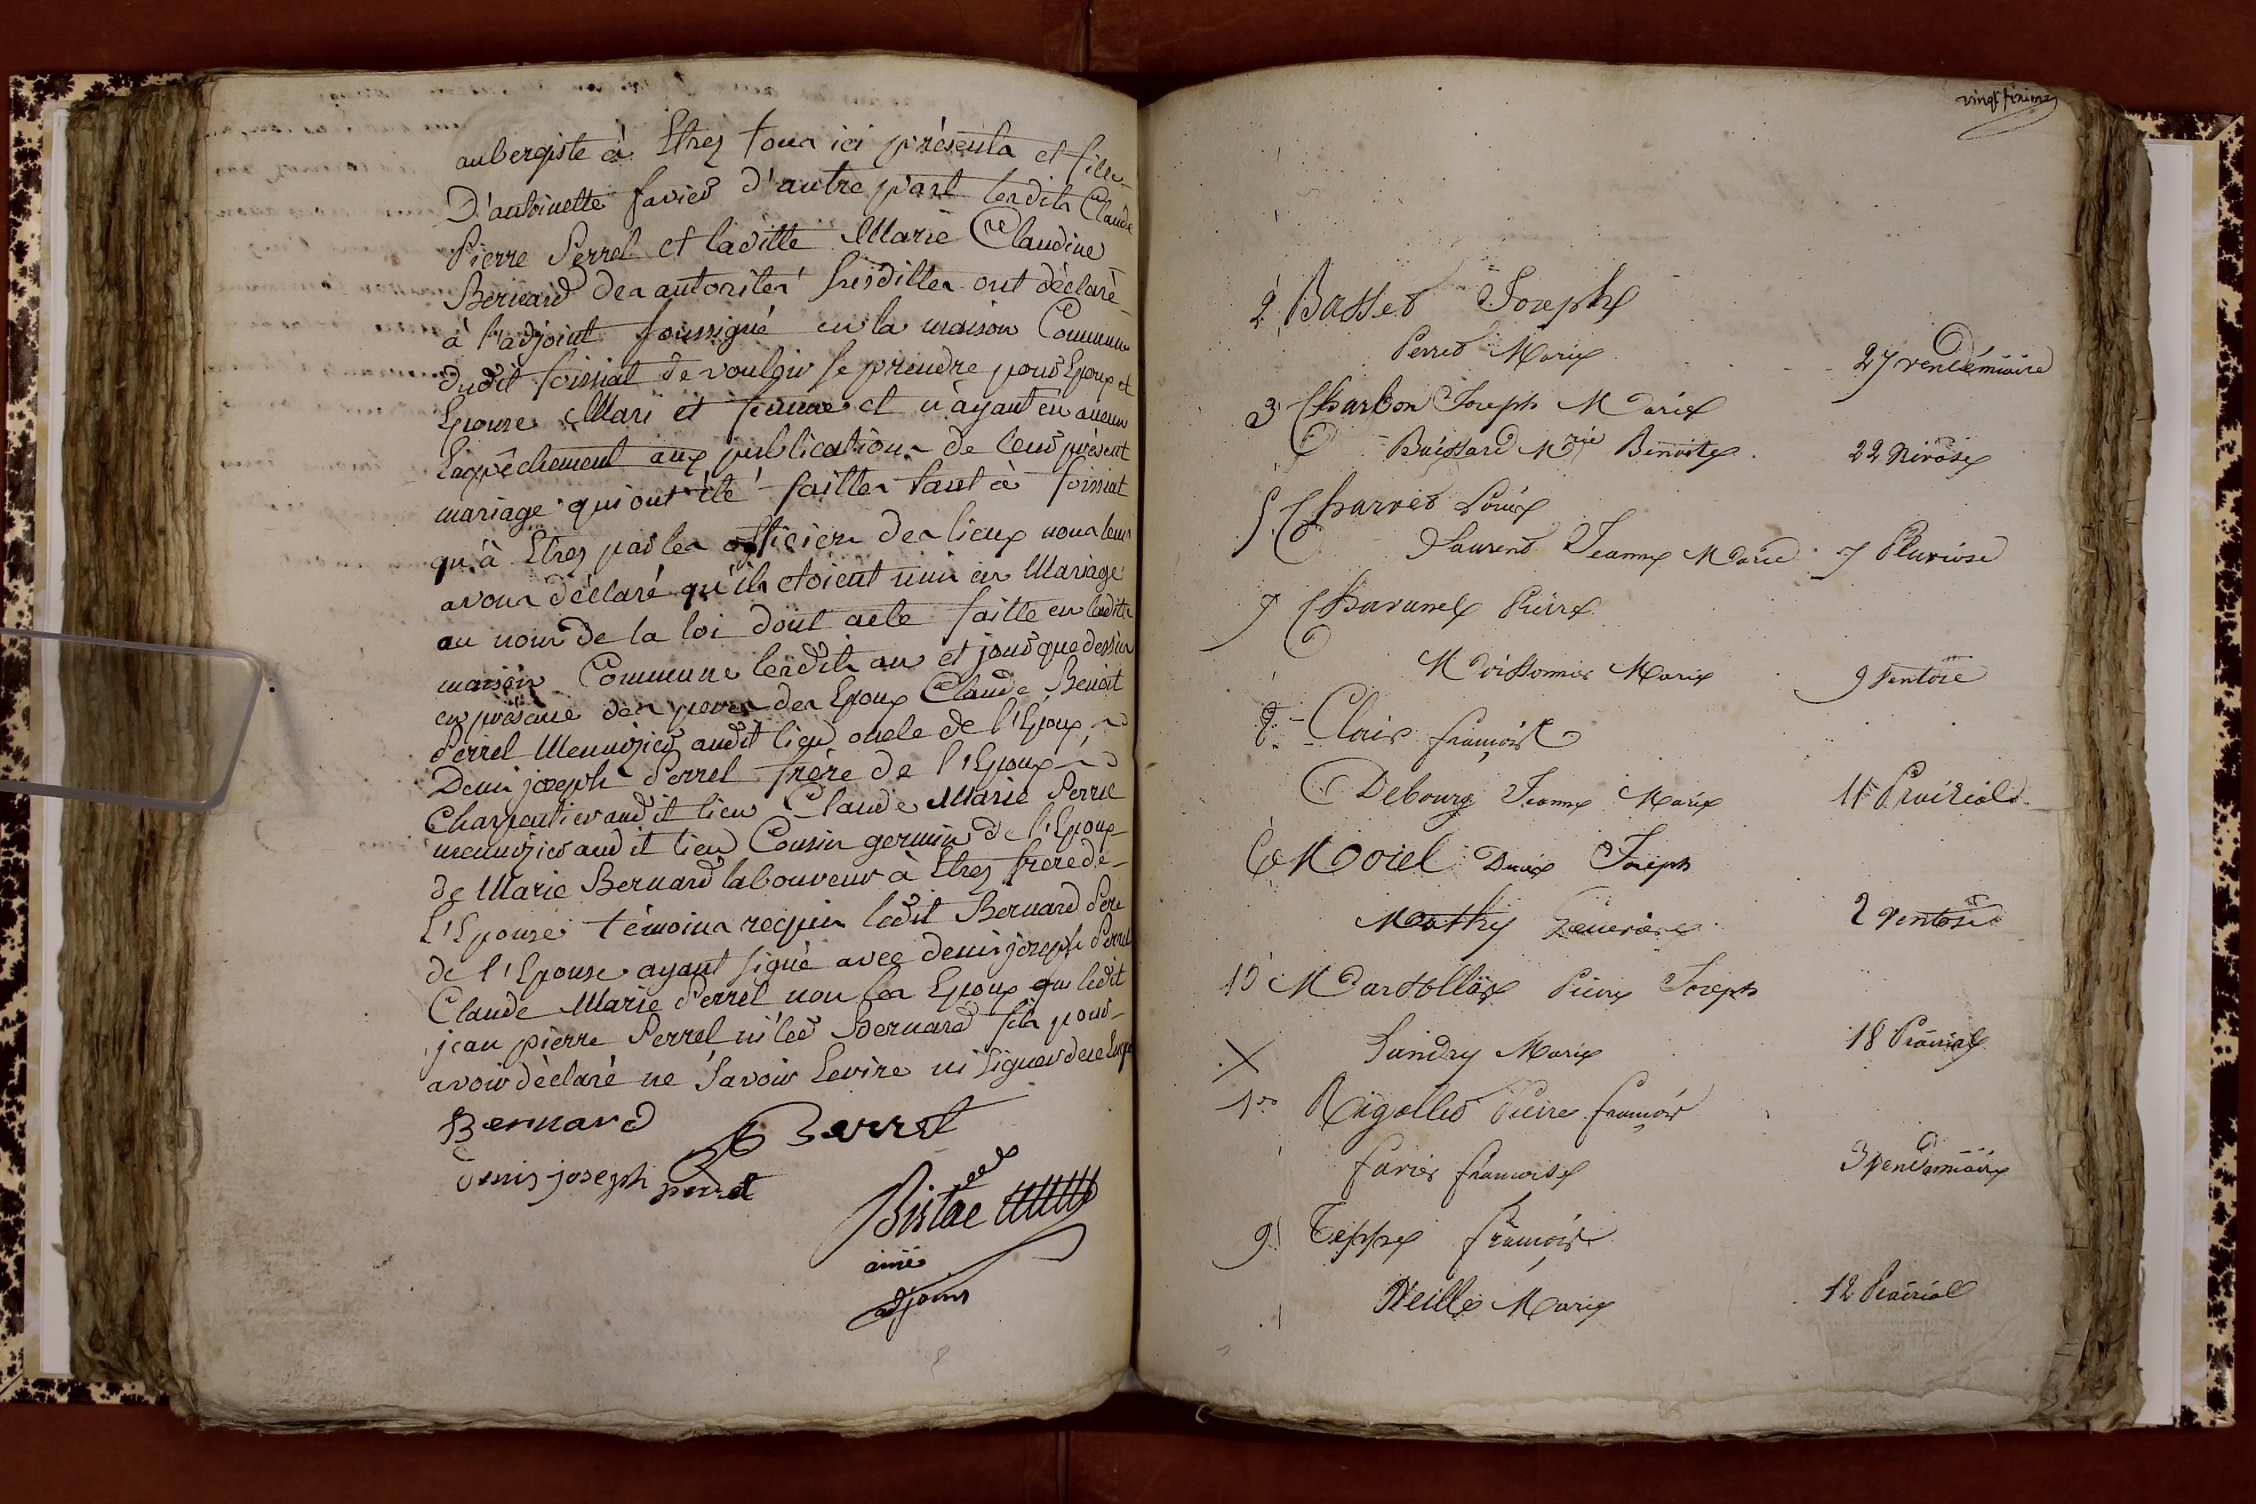 aubergiste à Etrez tous ici présents et fille
D'antoinette favier d'autre part lesdits Claude
Pierre Perrel et laditte Marie Claudine
Bernard des autorités susdittes ont déclaré
à l'adjoint soussigné en la maison Commune
dudit foissiat de vouloir se prendre pour Epoux et
Epouse Mari et femme et n'ayant eu aucun
Empêchement aux publications de leur présent
mariage qui ont été faittes tant à foissiat
qu'à Etrez par les officiers des lieux nous leur
avons déclaré qu'ils etoient unis en Mariage
au nom de la loi dont acte faitte en laditte
maison Commune lesdits an et jour que dessus
en présence des peres des Epoux Claude Benoit
Perrel Menuizier audit lieu oncle de l'Epoux
Denis joseph Perrel frère de l'Epoux
Charpentier audit lieu Claude Marie Perrel
menuizier audit lieu Cousin germin de l'Epoux
de Marie Bernard laboureur à Etrez frere de
l'Epouse témoins requis ledit Bernard Pere
de l'Epouse ayant signé avec denis joseph Perrel
Claude Marie Perrel non les Epoux que ledit
jean pierre Perrel ni led Bernard fils pour
avoir déclaré ne savoir Ecrire ni signer de ce Enquis
Bernard Perret
denis joseph perret
aîné
adjoint
vingt sixime
2 Basset Joseph
Perret Marie 27 vendémiaire
3 Charbon Joseph Marie
Buissard Mrie Benoite 22 Nivose
5 Charvet Louis
Laurent Jeanne Marie 7 Pluviose
7 Charanel Pierre
Moissonnier Marie 9 Ventose
8 Clair françois
Debourg Jeanne Marie 11 Prairial
6 Morel Denis Joseph
Mathy Genevieve 2 Ventose
10 Mardollier Pierre Joseph
Sandry Marie 18 Prairial
1er Rigollet Pierre françois
favier francoise 3 vendemiaire
9 Teppe françois
Neille Marie 12 Prairial